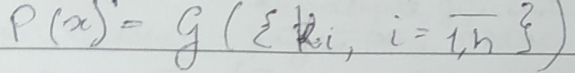 P(x) = G({ki, i = \overline{1,n}})